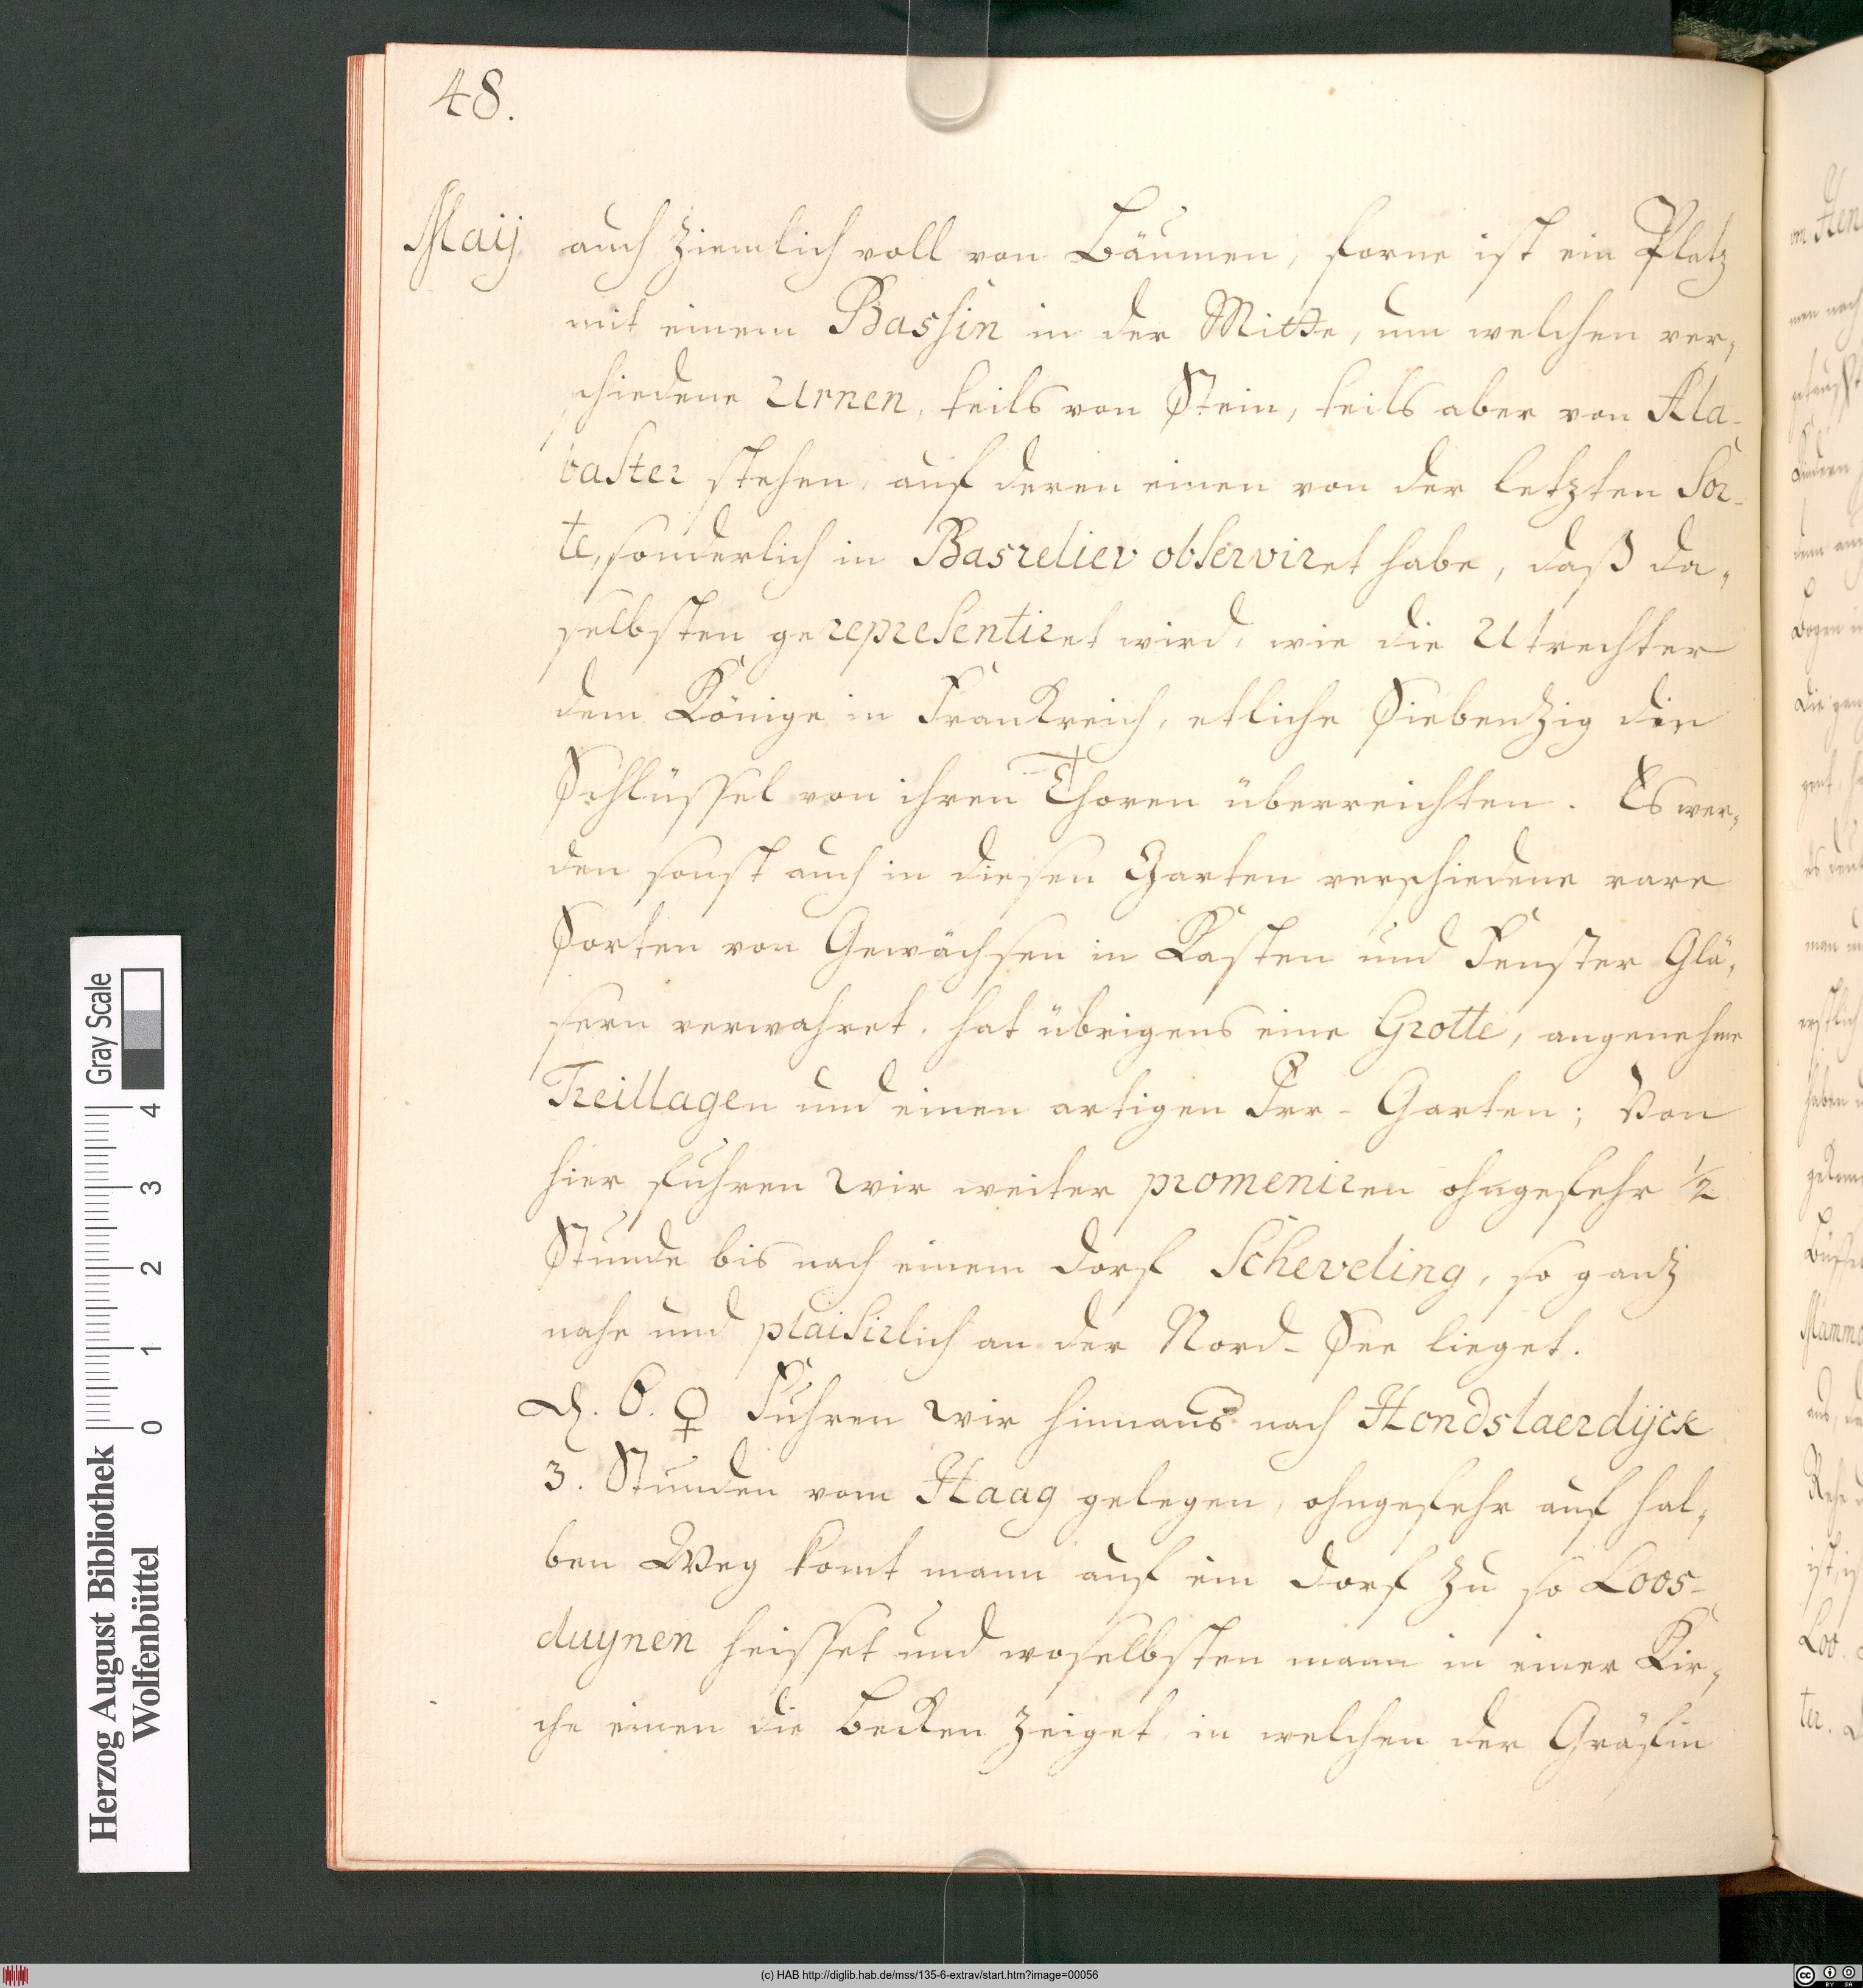 48.
Maij auch ziemlich voll von Bäumen, forne ist ein Platz
mit einem Bassin in der Mitte, um welchen ver,
schiedene Urnen, teils von Stein, teils aber von Ala-
baster stehen, auf deren einen von der letzten Sor-
te, sonderlich in Basreliev observiret habe, daß da,
selbsten gerepresentiret wird, wie die Utrechter
dem Könige in Frankreich, etliche Siebenzig die
Schlüssel von ihren Thoren überreichten. Es wer,
den sonst auch in diesen Garten verschiedene rare
Sorten von Gewächsen in Kasten und Fenster Glä,
sern verwahret, hat übrigens eine Grotte, angenehme
Treillagen und einen artigen Irr-Garten; Von
hier fuhren wir weiter promeniren ohngefehr ½
Stunde bis nach einem Dorf Scheveling, so ganz
nahe und plaisirlich an der Nord-See lieget.
d. 6. ♀ Fuhren wir hinnaus nach Hondslaerdijck
3. Stunden vom Haag gelegen, ohngefehr auf hal,
ben Weg komt mann auf ein Dorf zu so Loos-
duynen heisset und woselbsten mann in einer Kir,
che einen die Becken zeiget, in welchen der Gräfin
Herzog August Bibliothek
Wolfenbüttel
0 1 2 3 4
Gray Scale
(c) HAB http://diglib.hab.de/mss/135-6-extrav/start.htm?image=00056